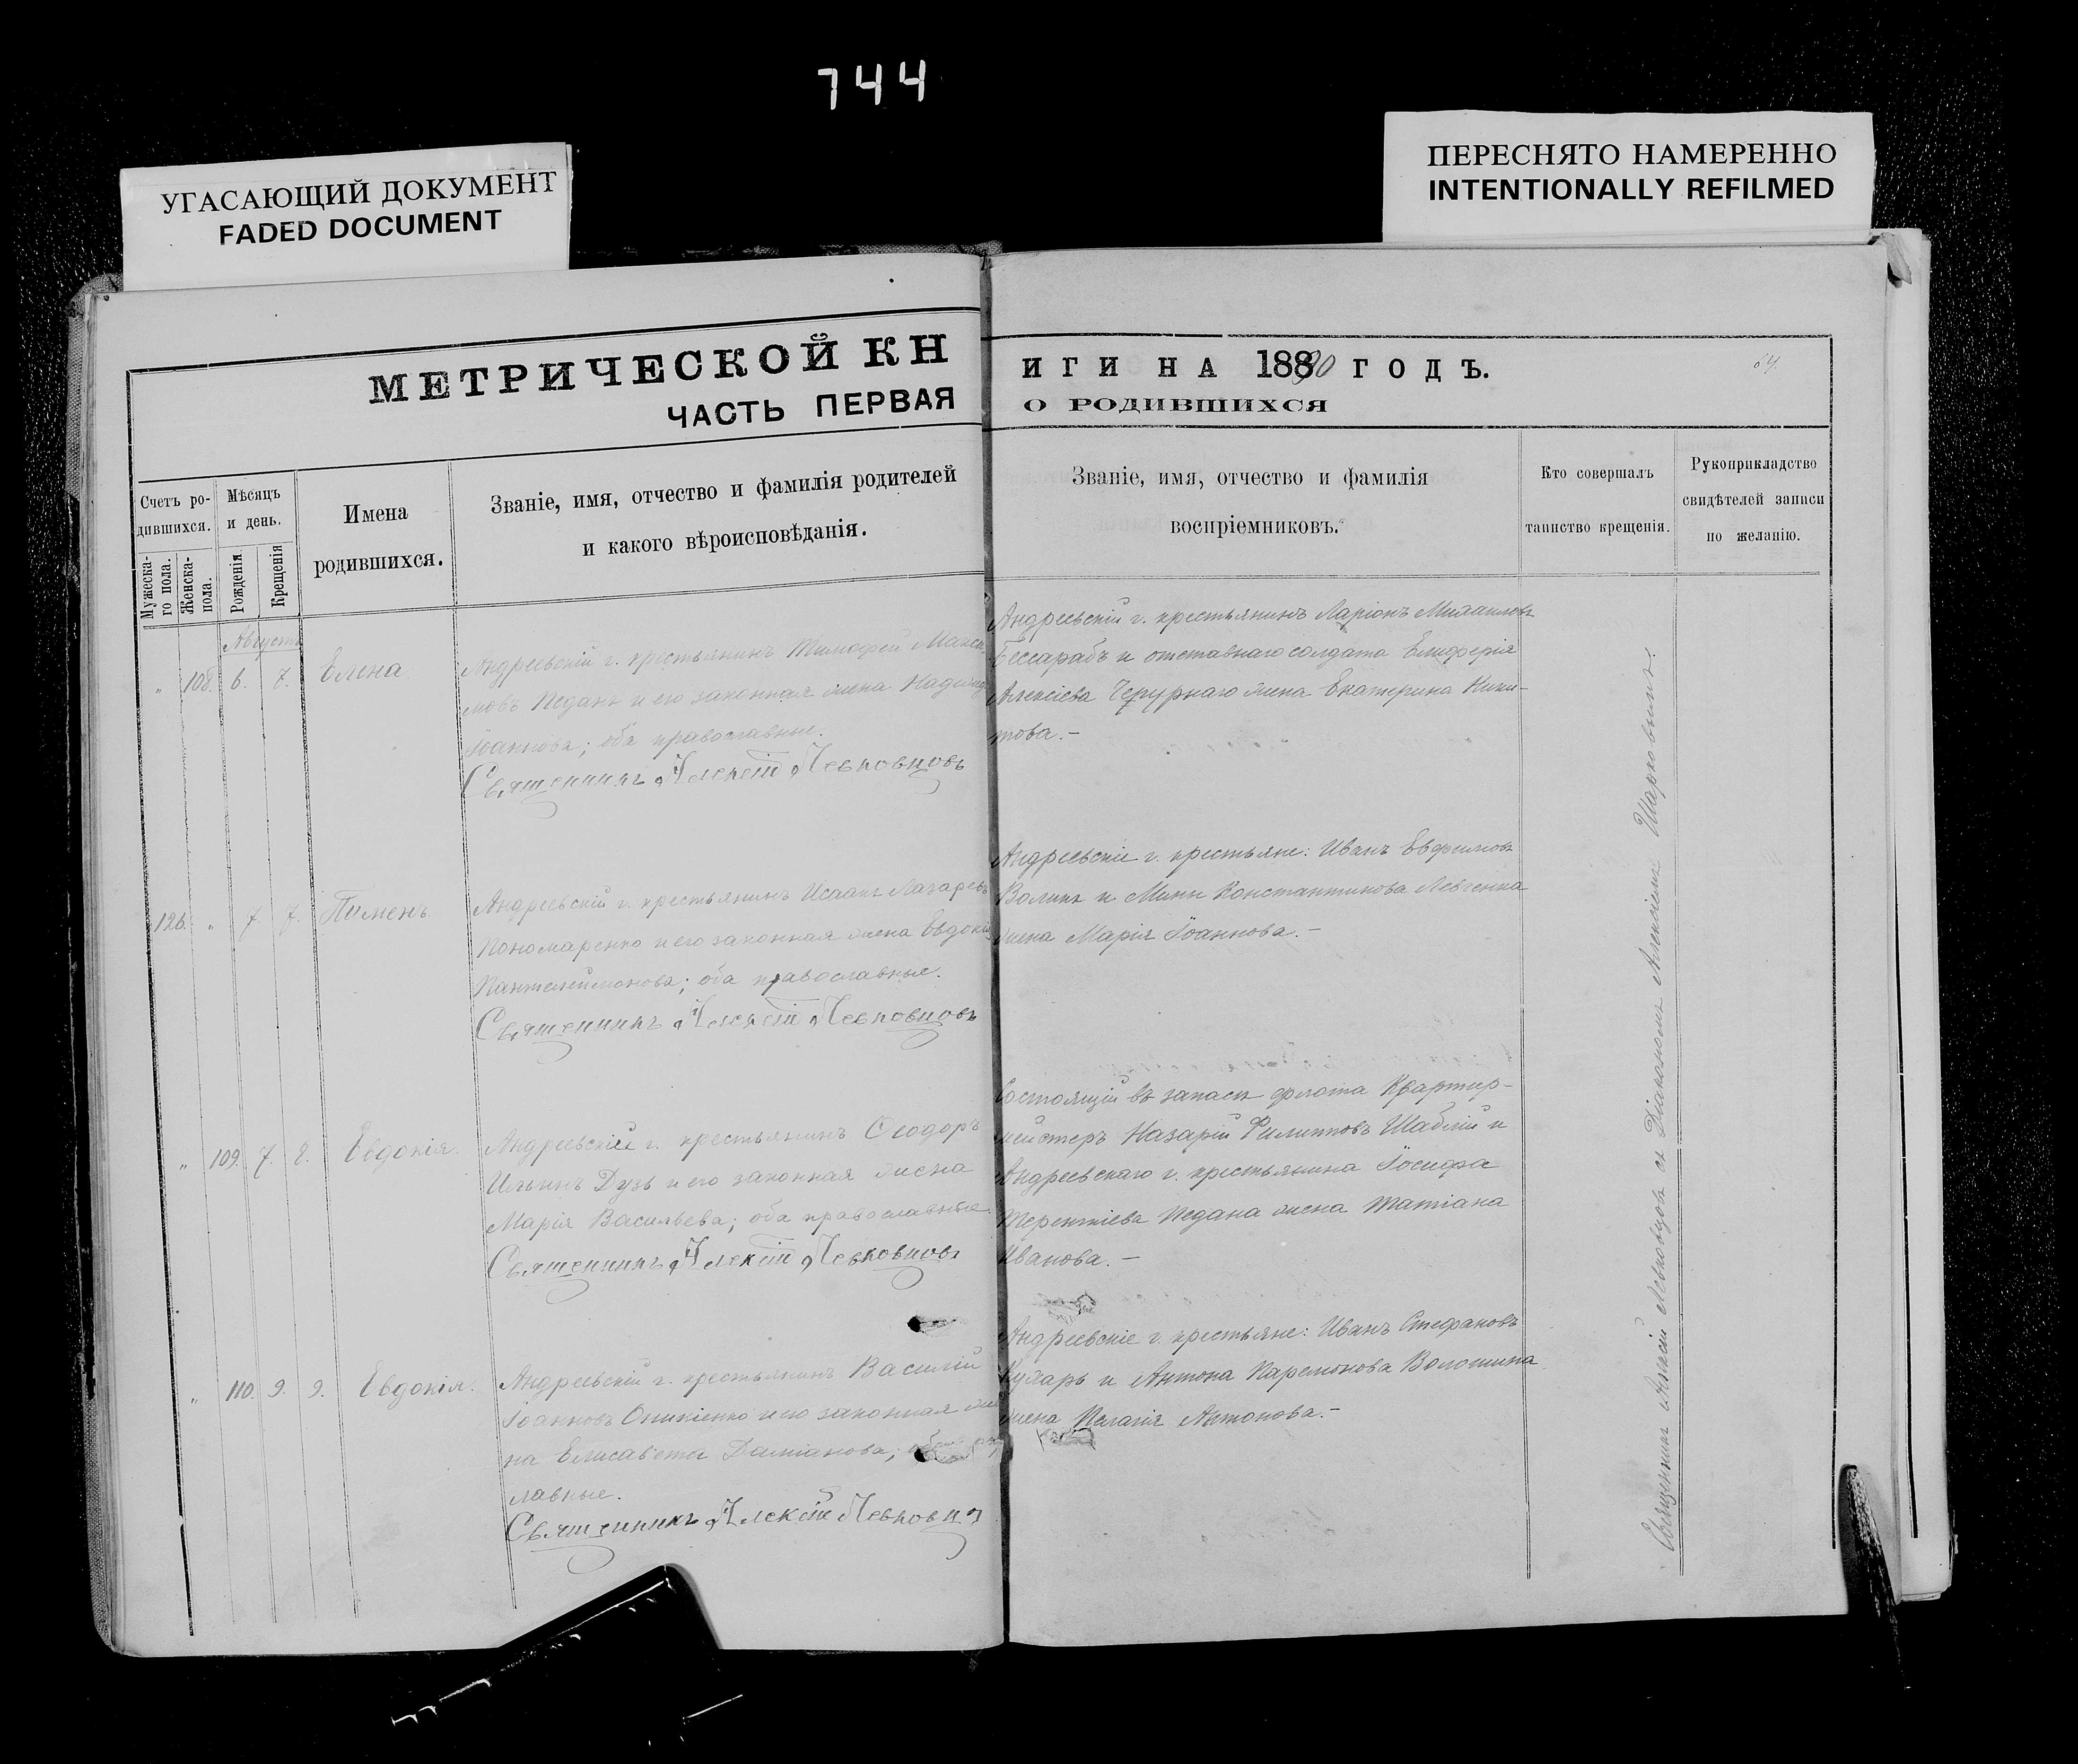 744
УГАСАЮЩИЙ ДОКУМЕНТ
FADED DOCUMENT
ПЕРЕСНЯТО НАМЕРЕННО
INTENTIONALLY REFILMED
МЕТРИЧЕСКОЙ КН
ЧАСТЬ ПЕРВАЯ
ИГИ НА 18890 ГОДЪ.
О РОДИВШИХСЯ
64.
Счетъ ро-
дившихся.
Мужеска-
го пола.
Женска-
пола.
Мѣсяцъ
и день.
Рожденія
Крещенія
Имена
родившихся.
Званіе, имя, отчество и фамилія родителей
и какого вѣроисповѣданія.
Званіе, имя, отчество и фамилія
воспріемниковъ.
Кто совершалъ
таинство крещенія.
Рукоприкладство
свидѣтелей записи
по желанію.
Августъ
„ 108. 6. 7. Елена.
Андреевскій г. крестьянинъ Тимофей Макси-
мовъ Педанъ и его законная жена Надежда
Іоаннова; оба православные.
Священникъ Алексій Левковцовъ
Андреевскій г. крестьянинъ Ларіонъ Михаиловъ
Бессарабъ и отставнаго солдата Елиферія
Алексіева Чепурнаго жена Екатерина Ники-
това.-
126. „ 7. 7. Пименъ.
Андреевскій г. крестьянинъ Исаакъ Лазаревъ
Пономаренко и его законная жена Евдокія
Пантелеймонова; оба православные.
Священникъ Алексій Левковцовъ
Андреевскіе г. крестьяне: Иванъ Евфимовъ
Воликъ и Мины Константинова Левченка
жена Марія Іоаннова.-
„ 109. 7. 8. Евдокія.
Андреевскій г. крестьянинъ Ѳеодоръ
Ильинъ Дузь и его законная жена
Марія Васильева; оба православные.
Священникъ Алексій Левковцовъ
Состоящій въ запасѣ флота Квартир-
мейстеръ Назарій Филипповъ Шаблій и
Андреевскаго г. крестьянина Іосифа
Терентіева Педана жена Татіана
Иванова.-
„ 110. 9. 9. Евдокія.
Андреевскій г. крестьянинъ Василій
Іоанновъ Оникіенко и его законная же
на Елисавета Даміанова; оба
лавные.
Священникъ Алексій Левковцо
Андреевскіе г. крестьяне: Иванъ Стефановъ
Кухарь и Антона Парамонова Волошина
жена Пелагія Антонова.-
Священникъ Алексій Левковцовъ съ Діакономъ Алексіемъ